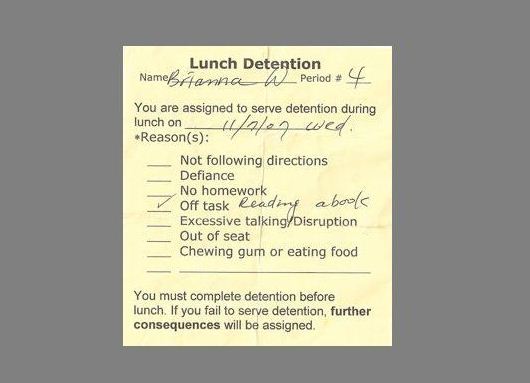 Lunch Detention
Name Brianna W Period # 4
You are assigned to serve detention during
lunch on 11/7/07 wed.
*Reason(s):
___ Not following directions
___ Defiance
___ No homework
✓ Off task Reading a book
___ Excessive talking/Disruption
___ Out of seat
___ Chewing gum or eating food
You must complete detention before
lunch. If you fail to serve detention, further
consequences will be assigned.